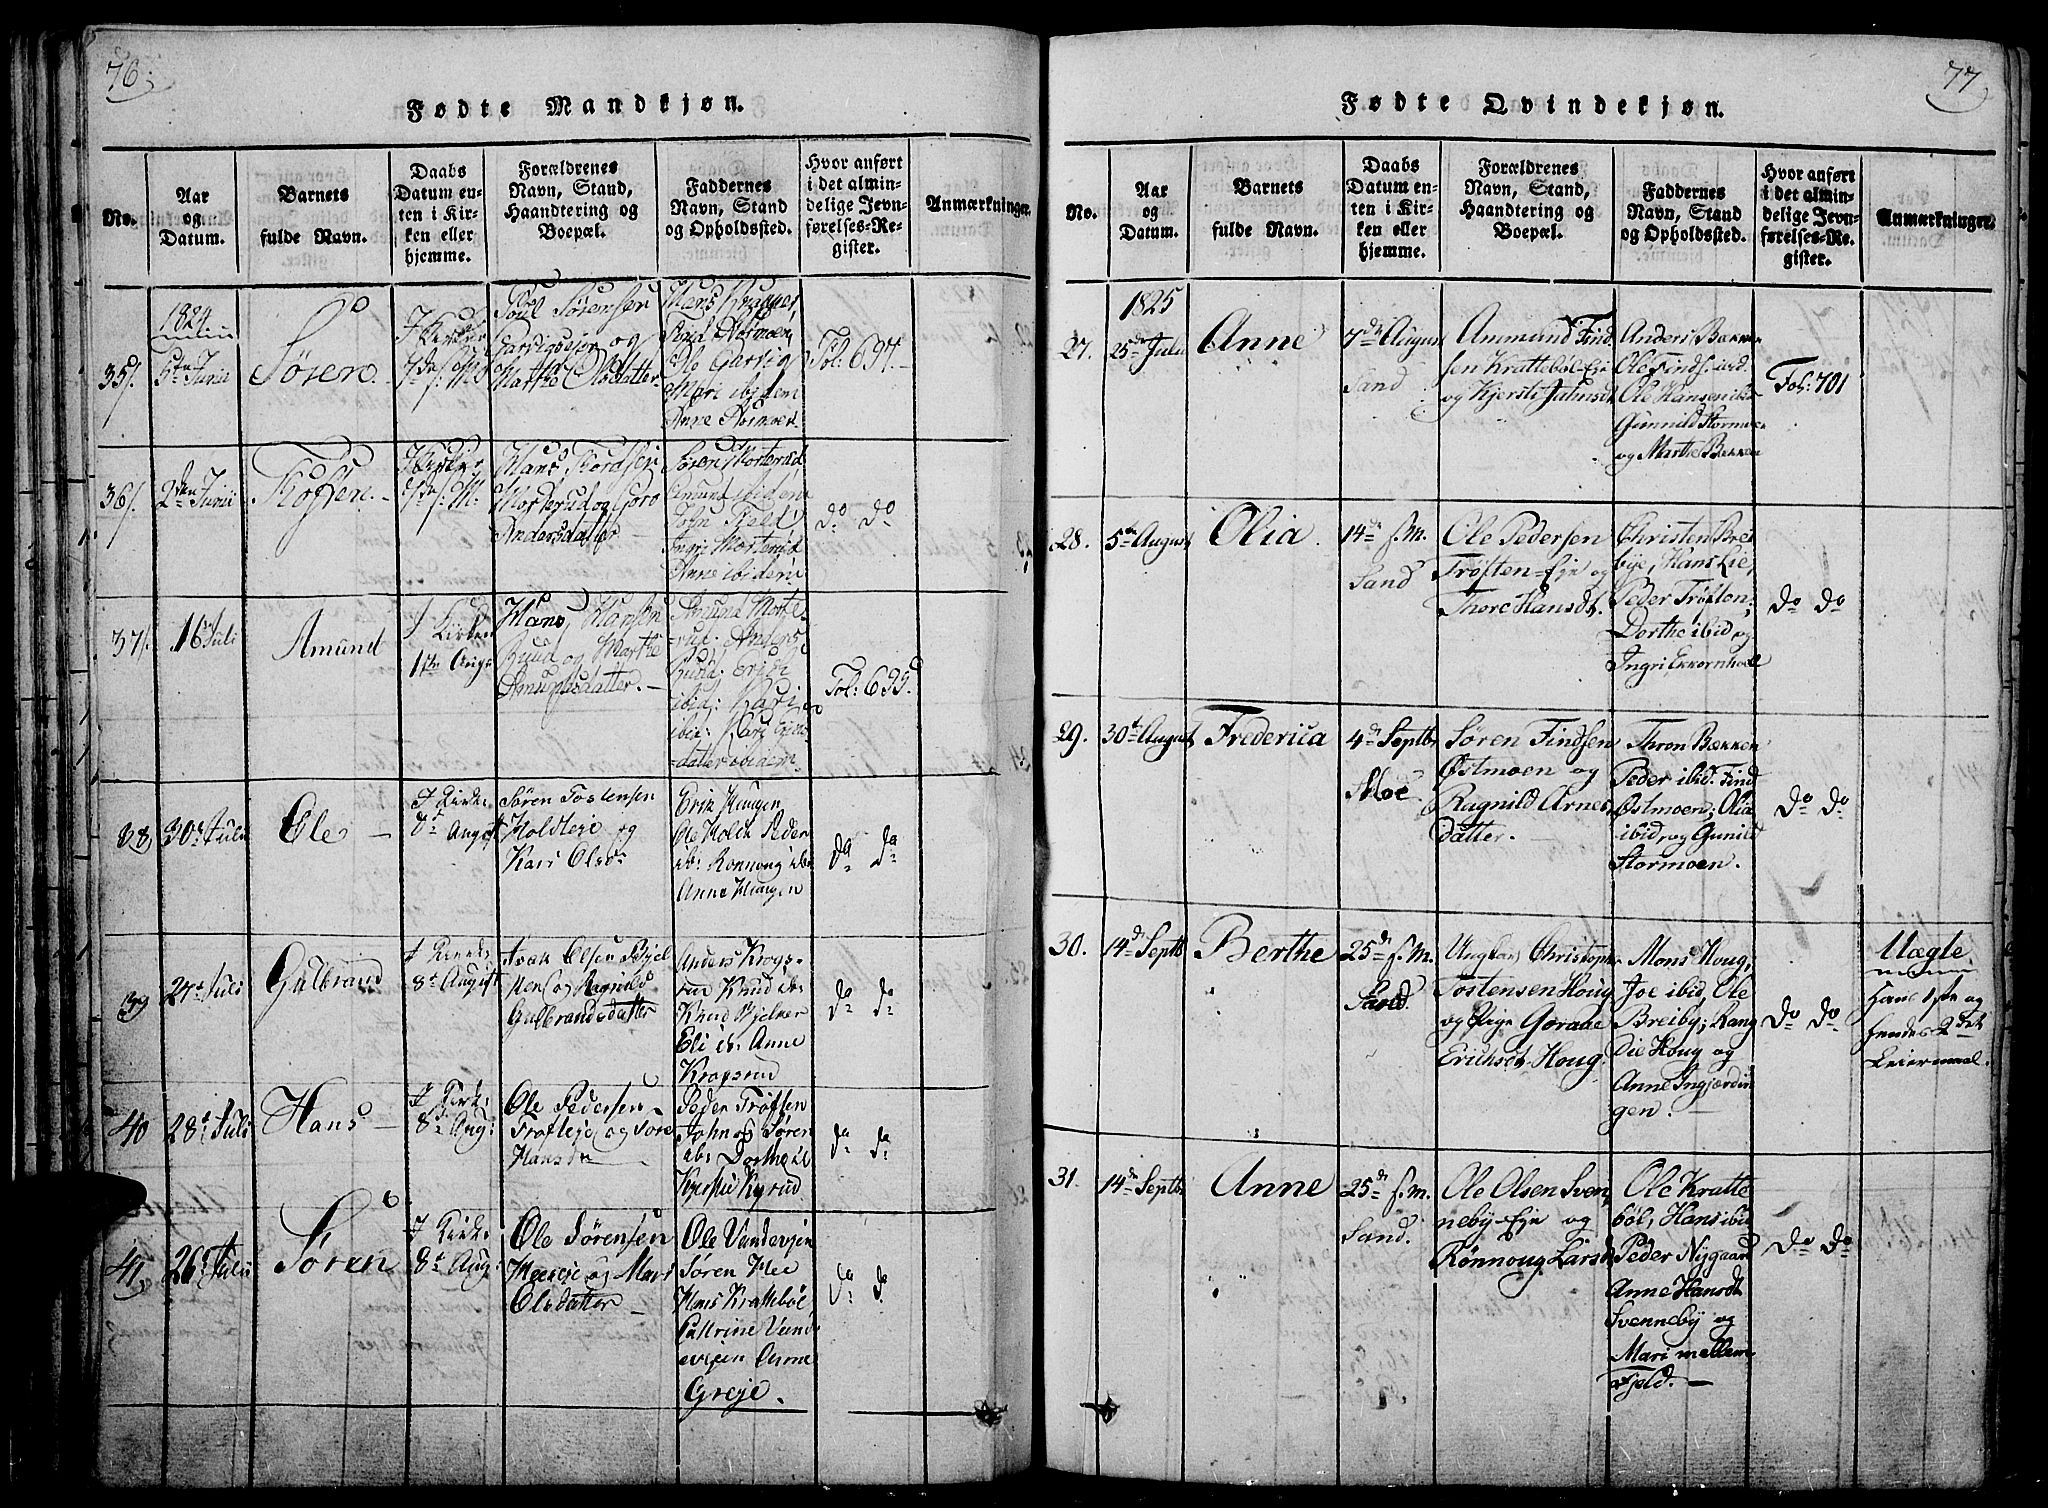 76.
Fødte Mandkjøn.
No.
Aar
og
Datum.
Barnets
fulde Navn.
Daabs
Datum en-
ten i Kir-
ken eller
hjemme.
Forældrenes
Navn, Stand,
Haandtering og
Boepæl.
Faddernes
Navn, Stand
og Opholdssted.
Hvor anført
i det almin-
delige Jevn-
førelses-Re-
gister.
Anmærkninger.
35/.
1824
5te Junii
Søren.
7de s: M:
Poul Sørensen
og
Marthe Olsdatter
Hans
Ole
Mari ibidem
Anne
Fol: 697.
36/.
2den Junii
7de s: M:
Hans
Morterud og
Andersdatter
Søren Morterud
Amund ibidem
John
Ingri Morterud
Anne ibidem
do do
37/.
16 Juli
Amund
1ste Aug.
Hans Hansen
Ruud og Marthe
Amundsdatter.
Amund Morte-
rud: Anders
Ruud:
ibid: Kari
ibid:
datter ibidem.
Fol: 699.
38,
30t Julii
Ole
I Kirke
8t August
Søren Tostensen
Holsteje og
Kari Olsdr
Erik Haugen
Ole Holst Peder
ib: Rønnoug ibm
Anne Haugen
do do
39
27t Juli
Gulbrand
I Kirke
8t August
Isak Olsen
og Ragnild
Gulbrandsdatter
Anders Krogs-
rud Knud ib:
Knud
Eli ib: Anne
Krogsrud
do do
40
28t Juli
Hans
I Kirk:
8t Aug:
Ole Pedersen
Trøfteje og Tore
Hansdr
Peder Trøften
Johnos Søren
ib: Dorthe ib
Kjerstie Kyrud
do do
41,
26t Julii
Søren
I Kirke
8t Aug:
Ole Sørensen
Meeeje og Mari
Olsdatter
Ole Vandevjen
Søren Mee
Hans Krattebøl
Cathrine Vand-
evjen Anne
Greje.
do do
77
Fødte Qvindekjøn.
No.
Aar
og
Datum.
Barnets
fulde Navn.
Daabs
Datum en-
ten i Kir-
ken eller
hjemme.
Forældrenes
Navn, Stand,
Haandtering og
Boepæl.
Faddernes
Navn, Stand
og Opholdssted.
Hvor anført
i det almin-
delige Jevn-
førelses-Re-
gister.
Anmærkninger.
27.
1825
25de Julii
Anne
7de August
Sand
Ammund Find-
sen Krattebøl-Eje
og Kjersti Johnsdt.
Anders Bækken
Ole Finds: ibid.
Ole Hansen ibid
Gunnild Stormoen
og Marthe Bekken
Fol: 701
28.
5te August
Olia.
14de s.M.
Sand
Ole Pedersen
Trøften-Eje og
Thore Hansdt.
Christen Brei-
bye, Hans Lie,
Peder Trøften;
Dorthe ibid og
Ingri Ekkornhoel
do do
29.
30te August
Frederica
4de Septbr
Moe
Søren Findsen
Østmoen og
Ragnild Arnes-
datter.
Thron Bækken
Peder ibid: Find
Østmoen; Olia
ibid og Gunild
Stormoen.
do do
30.
14de Septb
Berthe
25de s.M.
Sand.
Ungkarl Christopher
Tostensen Houg
og Pige Gorane
Erichsdt. Houg.
Mons Houg,
Joe ibid, Ole
Breiby; Rang-
die Houg og
Anne Ingjerdin-
gen.
do do
Uægte
Hans 1ste og
hendes 2det
Leiermaal.
31.
14de Septbr
Anne
25de s.M.
Sand.
Ole Olsen Sven-
neby-Eje og
Rønnoug Larsdt.
Ole Kratte-
bøl, Hans ibid
Peder Nygaard
Anne Hansdt.
Svenneby og
Mari mellem
Fjeld.
do do